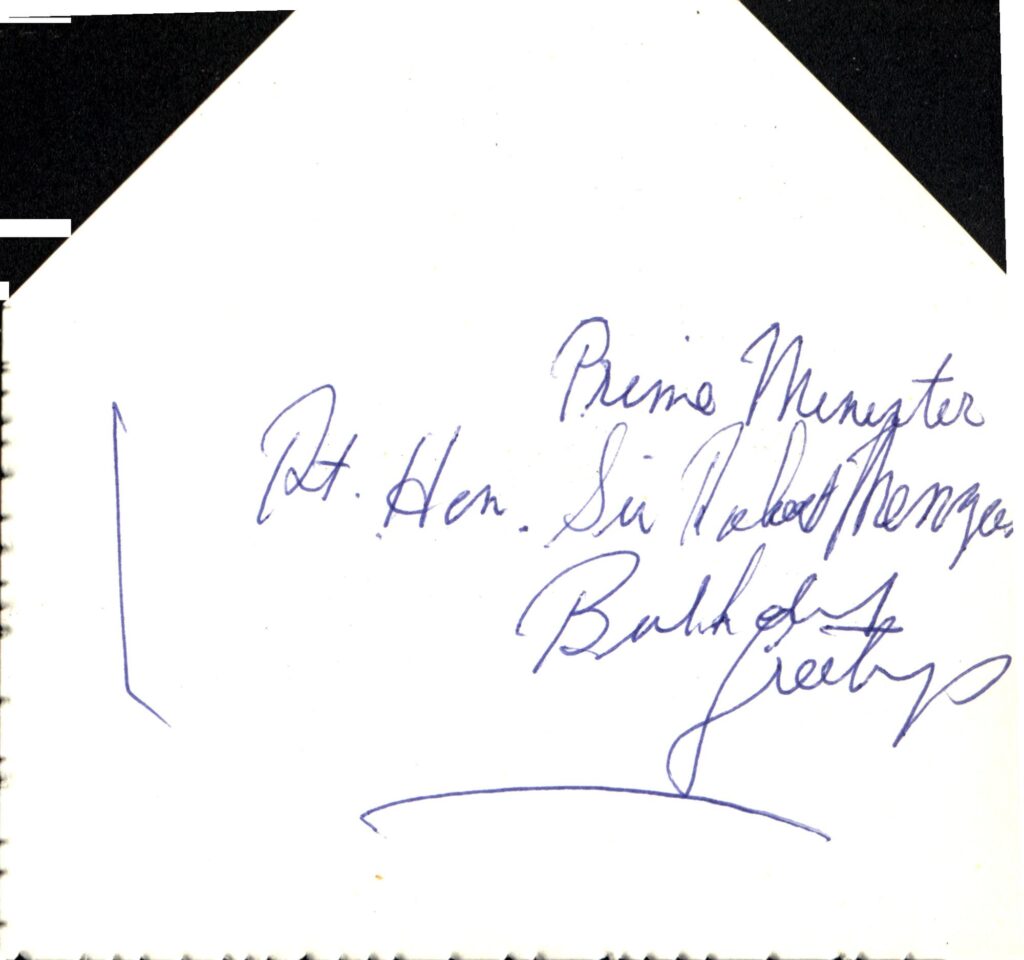 Prime Minister
Rt. Hon. Sir Robert Menzies
Birthday
Greetings